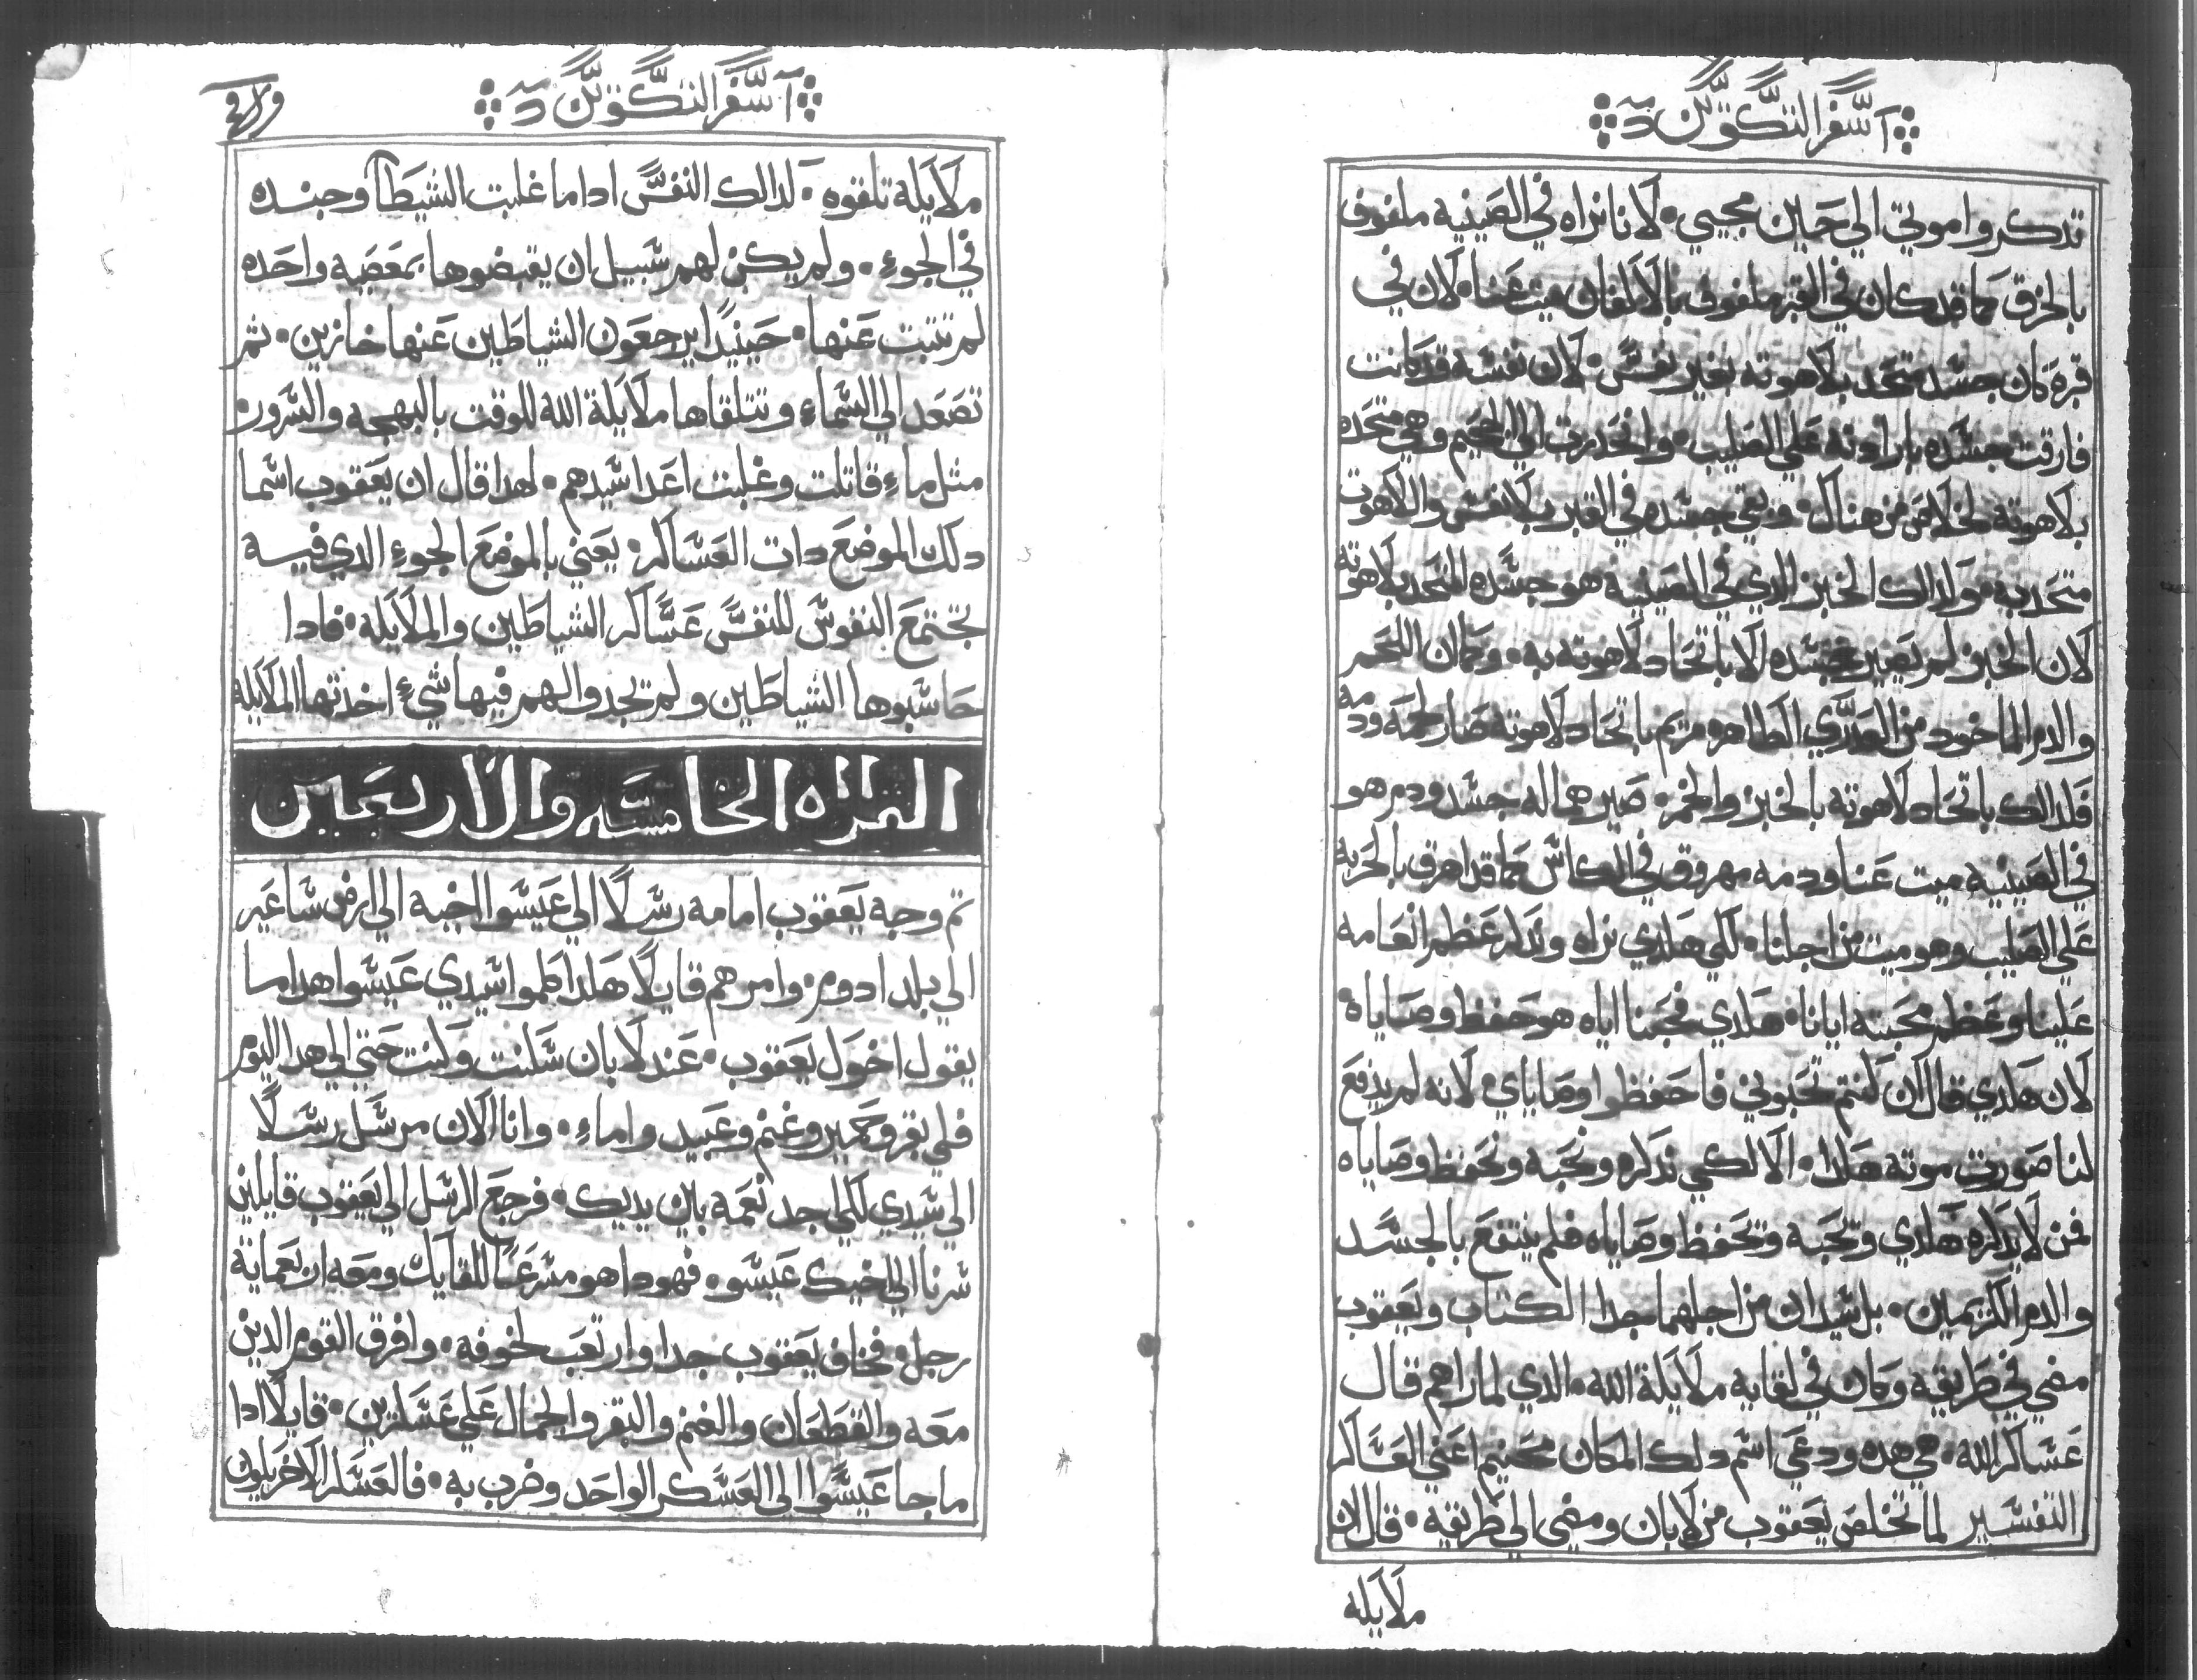 اسفر التكوين
تدكروا موتي الي حين مجيي٠ لاننا نراه في الصينيه ملفوف
بالخرق كما قد كان في القبر ملفوف بالالفان ميت عنا٠ لان في
قبره كان جسده متحد بلاهوته بغير نفس٠ لان نفسه قد كانت
فارقت جسده بارادته علي الصليب٠ وانحدرت الي الجحيم وهي متحده
بلاهوته لخلاص من هناك٠ وبقي جسده في القبر بلا نفس واللاهوت
متحد به٠ ولدالك الخبز الدي في الصينيه هو جسده المتحد بلاهوته
لان الخبز لم يصير جسده الا باتحاد لاهوته به٠ وكما ان اللحم
والدم الماخود من العدري الطاهره مريم باتحاد لاهوته صار لحمه ودمه
فلدالك باتحاد لاهوته بالخبز والخمر٠ صيرهما له جسد ودم هو
في الصينيه ميت عنا ودمه مهروق في الكاس كما قد اهرق بالحربه
علي الصليب وهو ميت من اجلنا٠ لكي هلدي نراه وندكر عظم انعامه
علينا وعظم محبته ايانا٠ هلدي فحبنا اياه هو حفظ وصاياه٠
لان هلدي قال ان كنتم تحبوني فاحفظوا وصاياي٠ لانه لم يدفع
لنا صورت موته هلدا٠ الا لكي ندكره ونحبه ونحفظ وصاياه
فمن لا يدكره هلدي وتحبه وتحفظ وصاياه فلم ينتفع بالجسد
والدم الكريمين٠ بل يدان من اجلهما جدا الكتاب ويعقوب
مضي في طريقه وكان في لقايه ملايلة الله٠ الدي لما راهم قال
عساكر الله٠ هي هده ودعي اسم دلك المكان محنيم اعني العساكر
التفسير لما تخلص يعقوب من لابان ومضي الي طريقه٠ قال ان
ملايله
اسفر التكوين
ملايلة تلقوه٠ لدالك النفس ادا ما غلبت الشيطان وجنده
في الجوء٠ ولم يكن لهم سبيل ان يقبضوها بمعصيه واحده
لم تتبت عنها٠ حينيدا يرجعون الشياطين عنها خازين٠ تم
تصعد الي السماء وتتلقاها ملايلة الله للوقت بالبهجه والسرور٠
متل ماء قاتلت وغلبت اعدا سيدهم٠ لهدا قال ان يعقوب اسما
دلك الموضع دات العساكر٠ يعني بالموضع الجوء الدي فيه
تجتمع النفوس للنفس عساكر الشياطين والملايله٠ فادا
حاسبوها الشياطين ولم تجدوا لهم فيها شيء اخدتها الملايله
القراه الخامسه والاربعين
تم وجه يعقوب امامه رسلا الي عيسوا اخيه الي ارض ساعير
الي بلد ادوم٠ وامرهم قايلا هلدا كلموا سيدي عيسوا هدا ما
يقول اخوك يعقوب٠ عند لابان سكنت ولبت حتي الي هدا اليوم
فلي بقر وحمير وغنم وعبيد واماء٠ وانا الان مرسل رسلا
الي سيدي لكي اجد نعمه بين يديك٠ فرجع الرسل الي يعقوب قايلين
سرنا الي اخيك عيسو٠ فهودا هو مسرعا للقايك ومعه اربعماية
رجل٠ فخاف يعقوب جدا وارتعب لخوفه٠ وافرق القوم الدين
معه والقطعان والغنم والبقر والجمال علي عسكرين٠ قايلا ادا
ما جا عيسوا الي العسكر الواحد وضرب به٠ فالعسكر الاخر يكون